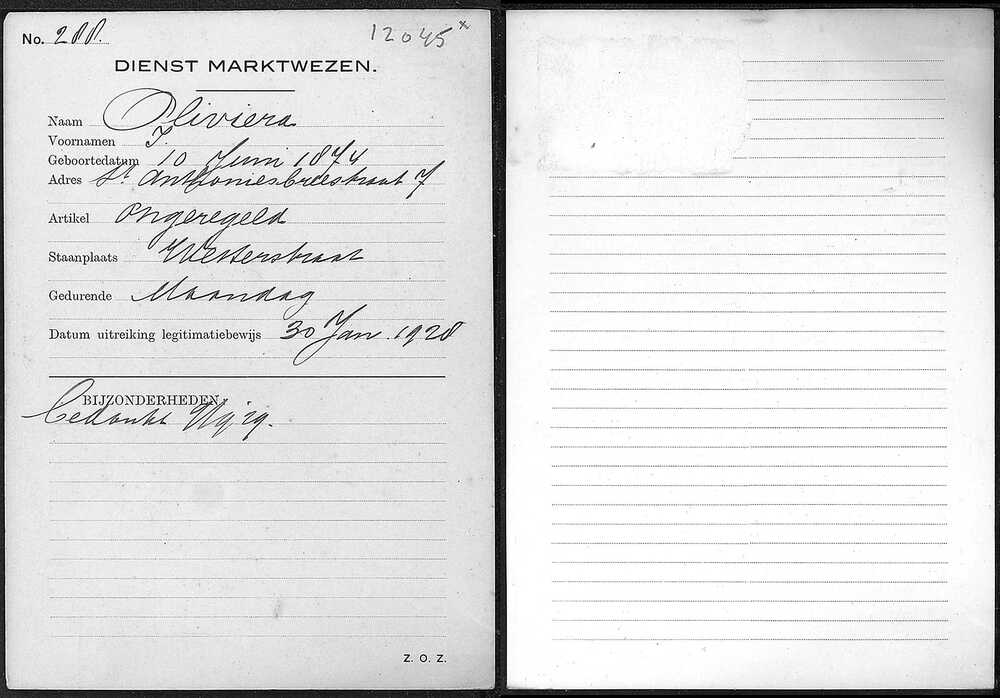 No. 288.
12045 x
DIENST MARKTWEZEN.
Naam Oliviera
Voornamen J.
Geboortedatum 10 Juni 1874
Adres St Anthoniesbreestraat 7
Artikel Ongeregeld
Staanplaats Westerstraat
Gedurende Maandag
Datum uitreiking legitimatiebewijs 30 Jan. 1928
BIJZONDERHEDEN:
Bedankt
Z. O. Z.